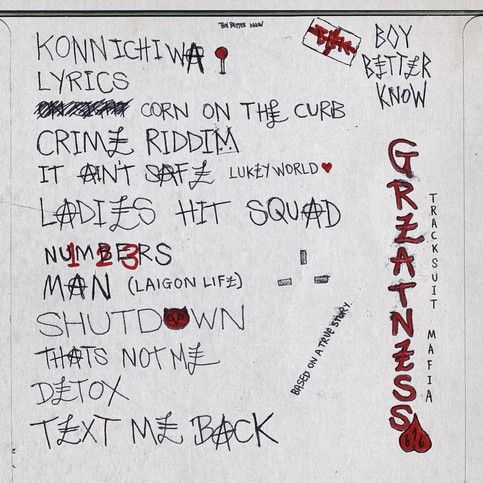 BOY BETTER KNOW
KONNICHIWA
LYRICS
CORN ON THE CURB
CRIME RIDDIM
IT AIN'T SAFE LUKEYWORLD
LADIES HIT SQUAD
NUMBERS
123
MAN (LAIGON LIFE)
SHUTDOWN
THATS NOT ME
DETOX
TEXT ME BACK
BOY
BETTER
KNOW
GREATNESS
TRACKSUIT MAFIA
BASED ON A TRUE STORY